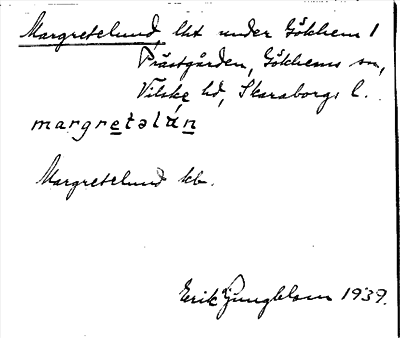 Margretelund lht under Gökhem 1
Prästgården, Gökhems sn,
Vilske hd, Skaraborgs l.
margretəlún
Margretelund kb.
Erik Ljungblom 1939.